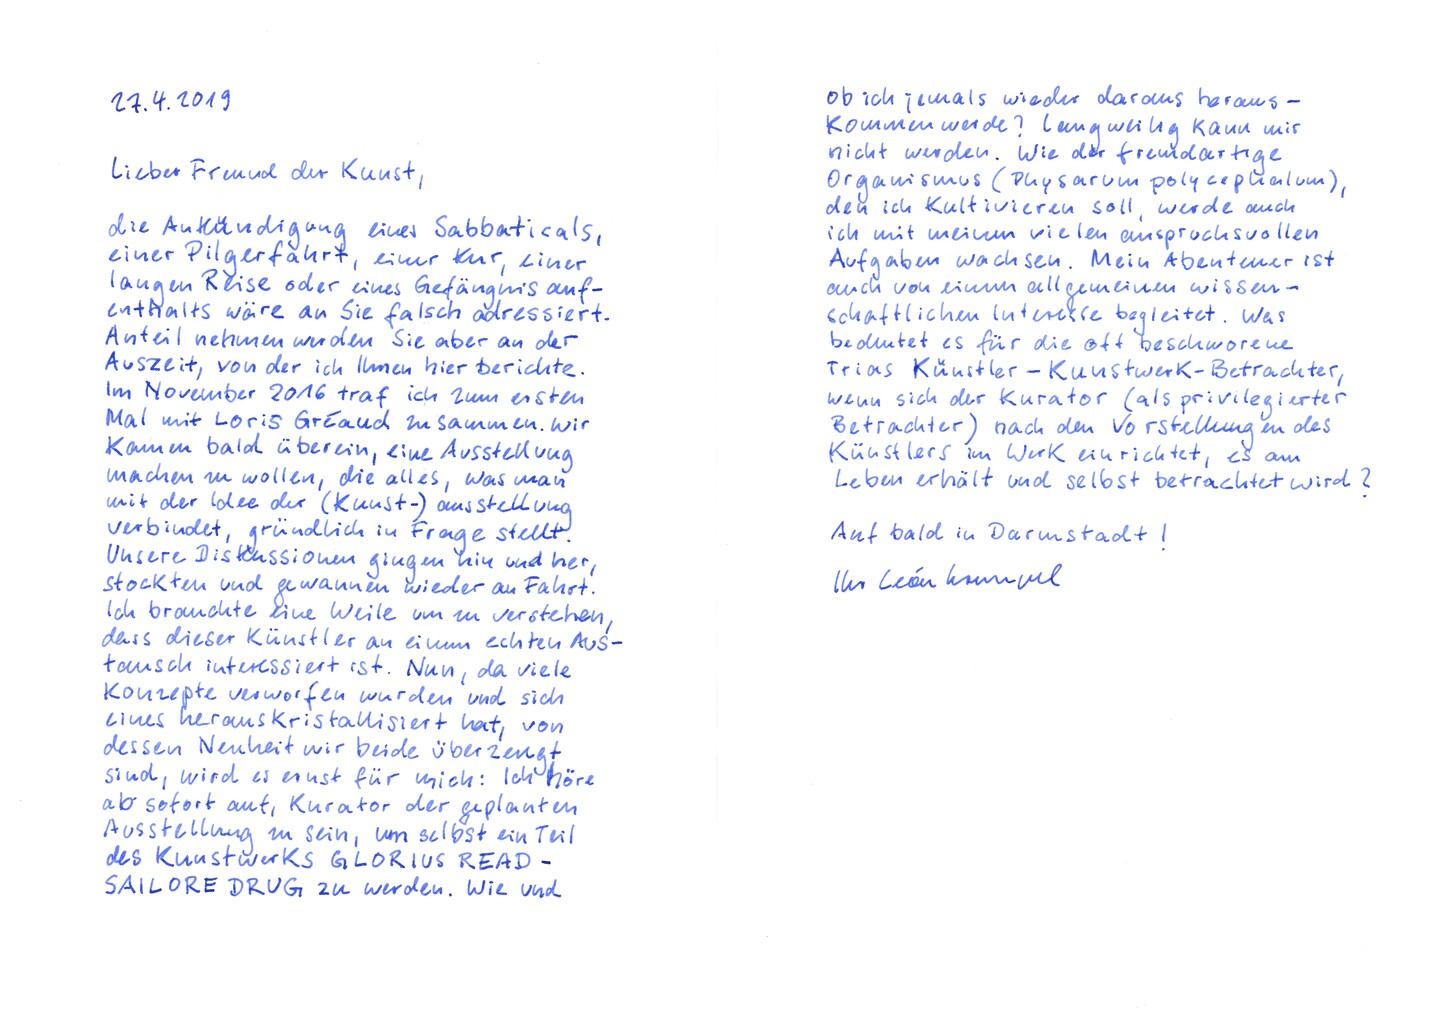 27.4.2019
Lieber Freund der Kunst,
die Ankündigung eines Sabbaticals,
einer Pilgerfahrt, einer Kur, einer
langen Reise oder eines Gefängnisauf-
enthalts wäre an Sie falsch adressiert.
Anteil nehmen werden Sie aber an der
Auszeit, von der ich Ihnen hier berichte.
Im November 2016 traf ich zum ersten
Mal mit Loris Gréaud zusammen. Wir
kamen bald überein, eine Ausstellung
machen zu wollen, die alles, was man
mit der Idee der (Kunst-) ausstellung
verbindet, gründlich in Frage stellt.
Unsere Diskussionen gingen hin und her,
stockten und gewannen wieder an Fahrt.
Ich brauchte eine Weile um zu verstehen,
dass dieser Künstler an einem echten Aus-
tausch interessiert ist. Nun, da viele
Konzepte verworfen wurden und sich
eines herauskristallisiert hat, von
dessen Neuheit wir beide überzeugt
sind, wird es ernst für mich: Ich höre
ab sofort auf, Kurator der geplanten
Ausstellung zu sein, um selbst ein Teil
des Kunstwerks GLORIUS READ -
SAILORE DRUG zu werden. Wie und
ob ich jemals wieder daraus heraus-
kommen werde? Langweilig kann mir
nicht werden. Wie der fremdartige
Organismus (Physarum polycephalum),
den ich kultivieren soll, werde auch
ich mit meinen vielen anspruchsvollen
Aufgaben wachsen. Mein Abenteuer ist
auch von einem allgemeinen wissen-
schaftlichen Interesse begleitet. Was
bedeutet es für die oft beschworene
Trias Künstler - Kunstwerk - Betrachter,
wenn sich der Kurator (als privilegierter
Betrachter) nach den Vorstellungen des
Künstlers im Werk einrichtet, es am
Leben erhält und selbst betrachtet wird?
Auf bald in Darmstadt!
Ihr León Krempel